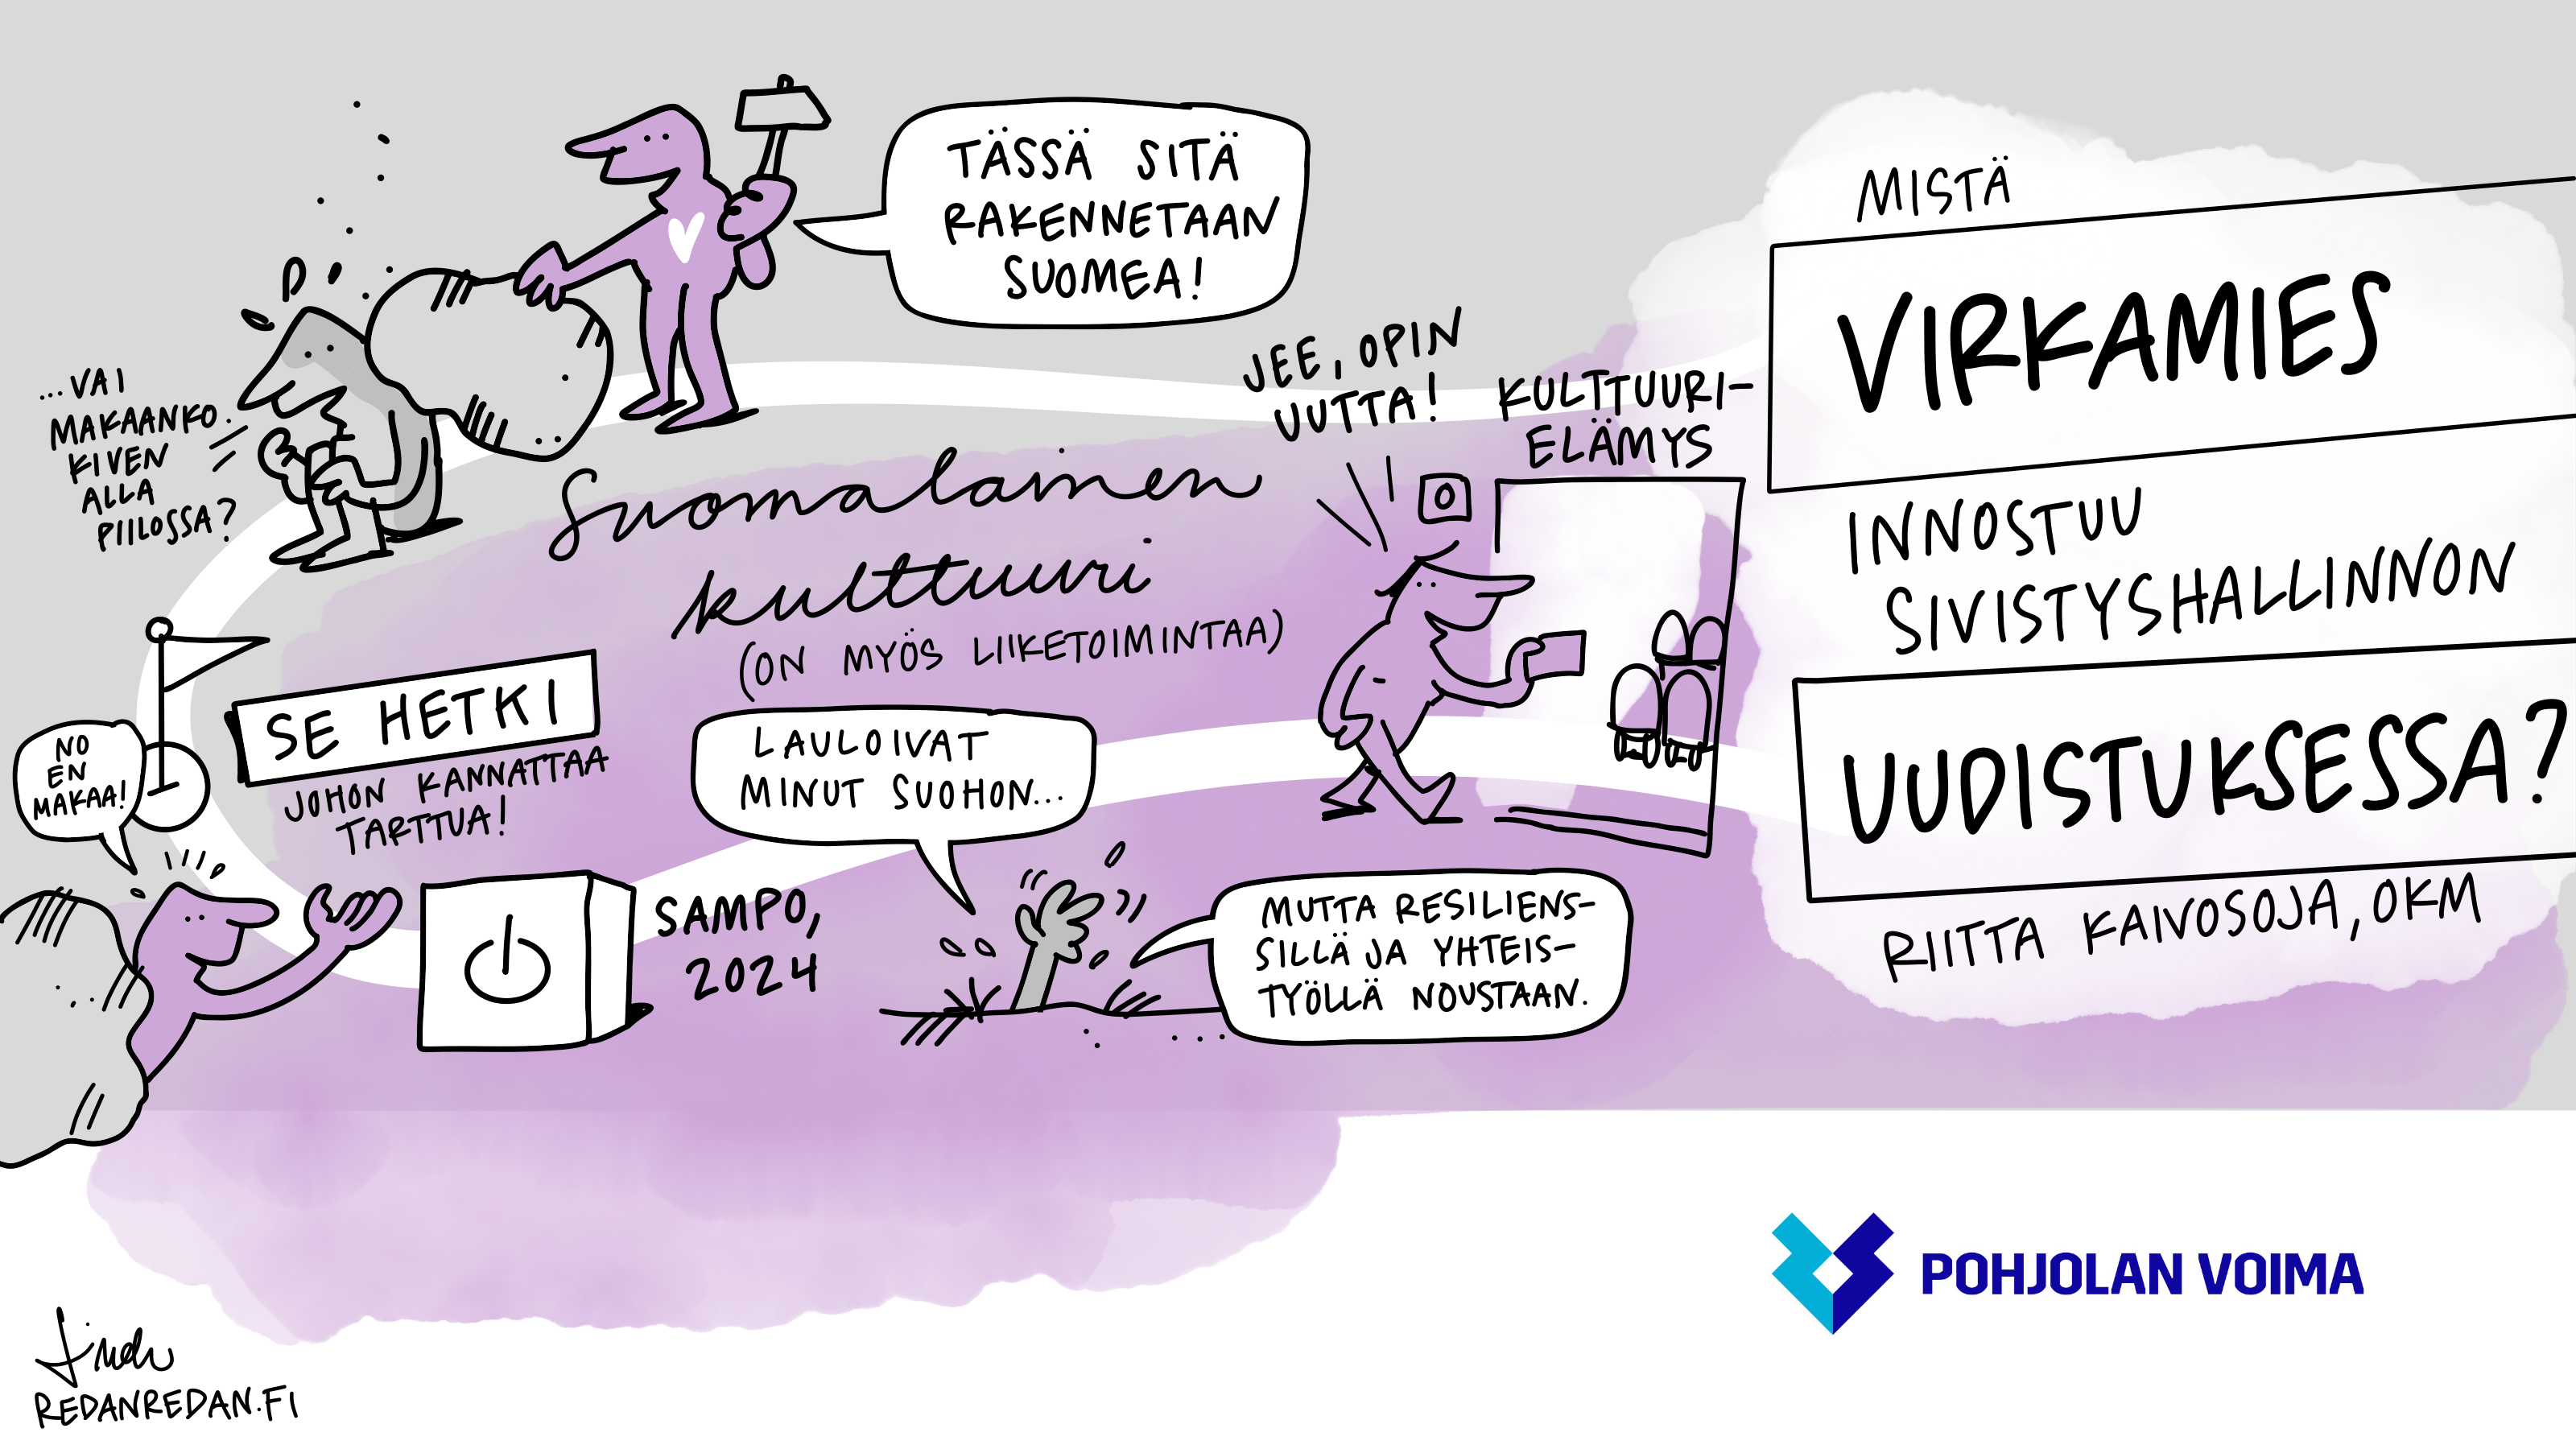 TÄSSÄ SITÄ
RAKENNETAAN
SUOMEA!
...VAI
MAKAANKO
KIVEN
ALLA
PIILOSSA?
Suomalainen
kulttuuri
(ON MYÖS LIIKETOIMINTAA)
JEE, OPIN
UUTTA!
KULTTUURI-
ELÄMYS
MISTÄ
VIRKAMIES
INNOSTUU
SIVISTYSHALLINNON
UUDISTUKSESSA?
RIITTA KAIVOSOJA, OKM
NO
EN
MAKAA!
SE HETKI
JOHON KANNATTAA
TARTTUA!
LAULOIVAT
MINUT SUOHON...
SAMPO,
2024
MUTTA RESILIENS-
SILLÄ JA YHTEIS-
TYÖLLÄ NOUSTAAN.
POHJOLAN VOIMA
REDANREDAN.FI